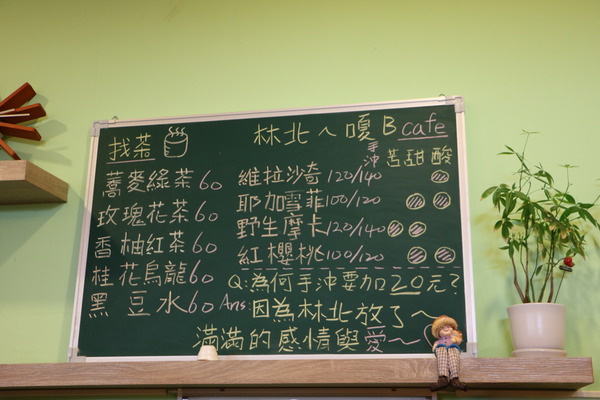 找茶
蕎麥綠茶60
玫瑰花茶60
香柚紅茶60
桂花烏龍60
黑豆水60
林北ㄟ嗄B cafe
手沖 苦 甜 酸
維拉沙奇120/140
耶加雪菲100/120
野生摩卡120/140
紅櫻桃100/120
Q:為何手沖要加20元?
Ans:因為林北放了～
滿滿的感情與愛～